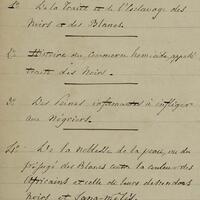 1º De la Traite et de l'Esclavage des
Noirs et des Blancs.
2º Histoire du Commerce homicide, appelé
traite des Noirs.
3º Des Peines infamantes à infliger
aux Négriers.
4º De la Noblesse de la peau, ou du
préjugé des Blancs contre la couleur des
Africains et celle de leurs descendans
noirs et Sang-mêlés.